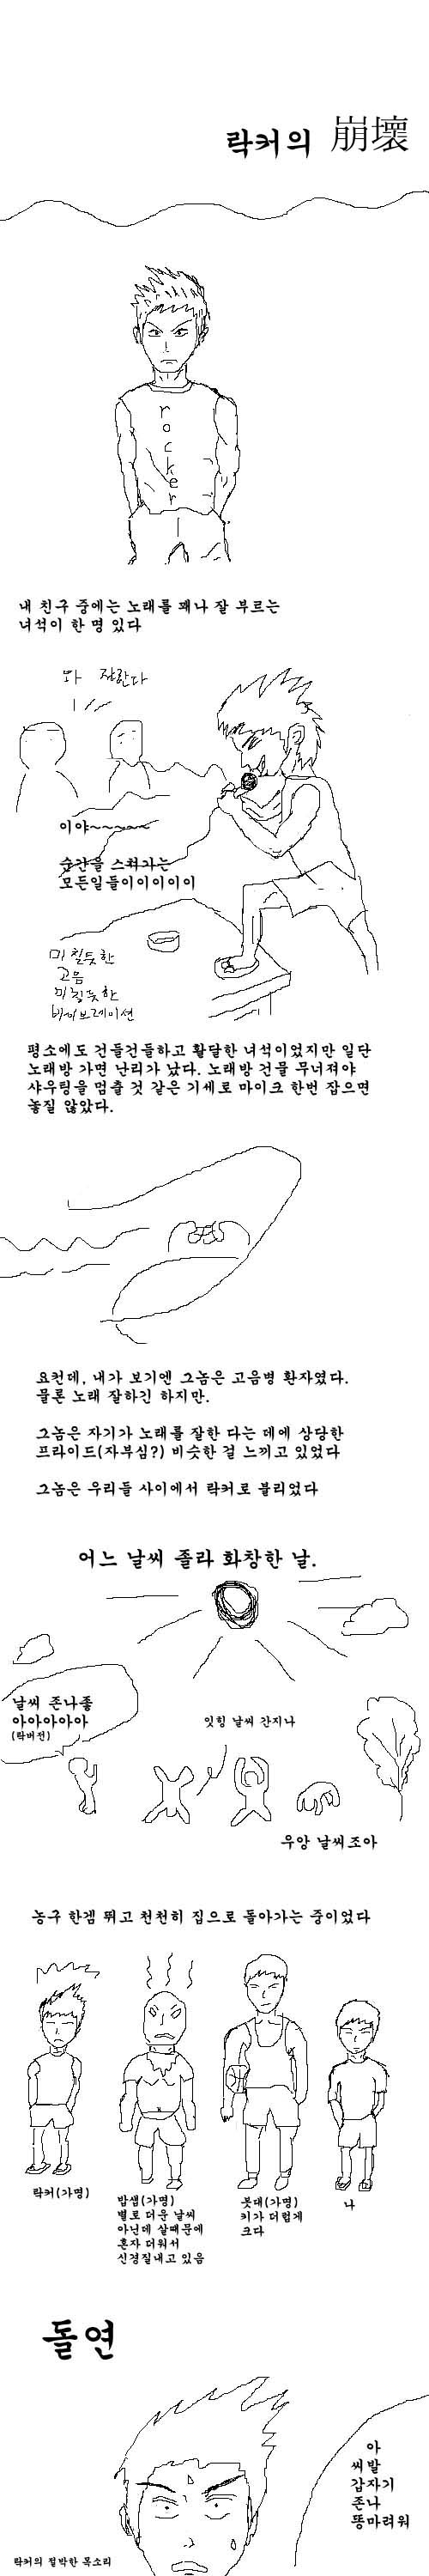 락커의 崩壞
rocker
내 친구 중에는 노래를 꽤나 잘 부르는
녀석이 한 명 있다
와 잘한다
이야~~~~~
순간을 스쳐가는
모든일들이이이이이
미칠듯한
고음
미칠듯한
바이브레이션
평소에도 건들건들하고 활달한 녀석이었지만 일단
노래방 가면 난리가 났다. 노래방 건물 무너져야
샤우팅을 멈출 것 같은 기세로 마이크 한번 잡으면
놓질 않았다.
요컨데, 내가 보기엔 그놈은 고음병 환자였다.
물론 노래 잘하긴 하지만.
그놈은 자기가 노래를 잘한 다는 데에 상당한
프라이드(자부심?) 비슷한 걸 느끼고 있었다
그놈은 우리들 사이에서 락커로 불리었다
어느 날씨 졸라 화창한 날.
날씨 존나좋
아아아아아
(락버전)
잇힝 날씨 간지나
우앙 날씨조아
농구 한겜 뛰고 천천히 집으로 돌아가는 중이었다
락커(가명)
밥샙(가명)
별로 더운 날씨
아닌데 살때문에
혼자 더워서
신경질내고 있음
봇대(가명)
키가 더럽게
크다
나
돌연
아
씨발
갑자기
존나
똥마려워
락커의 절박한 목소리